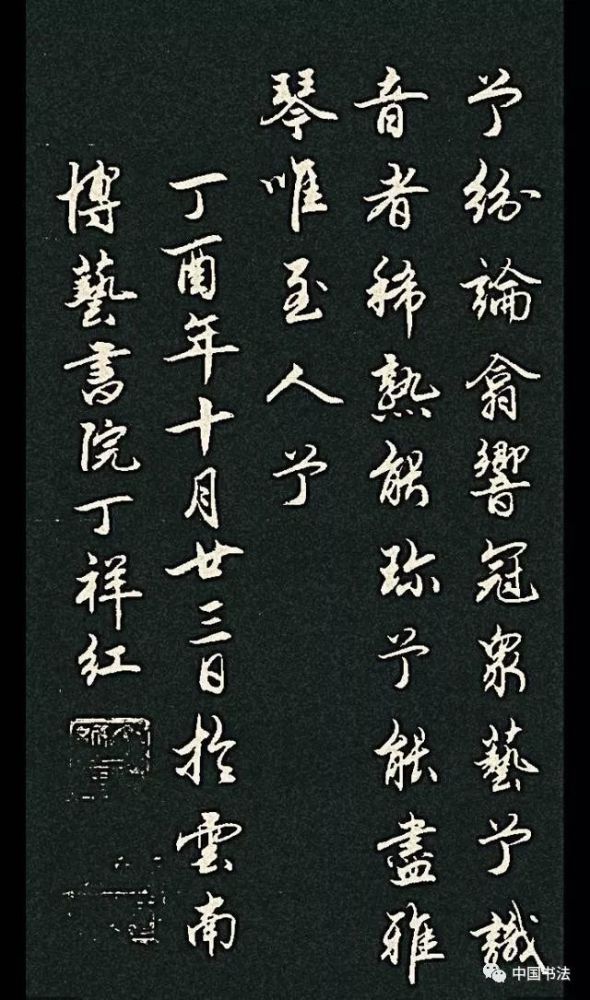 兮紛論翕響冠衆藝兮識
音者稀熟能珎兮能盡雅
琴唯至人兮
丁酉年十月廿三日於雲南
博藝書院丁祥紅
中国书法